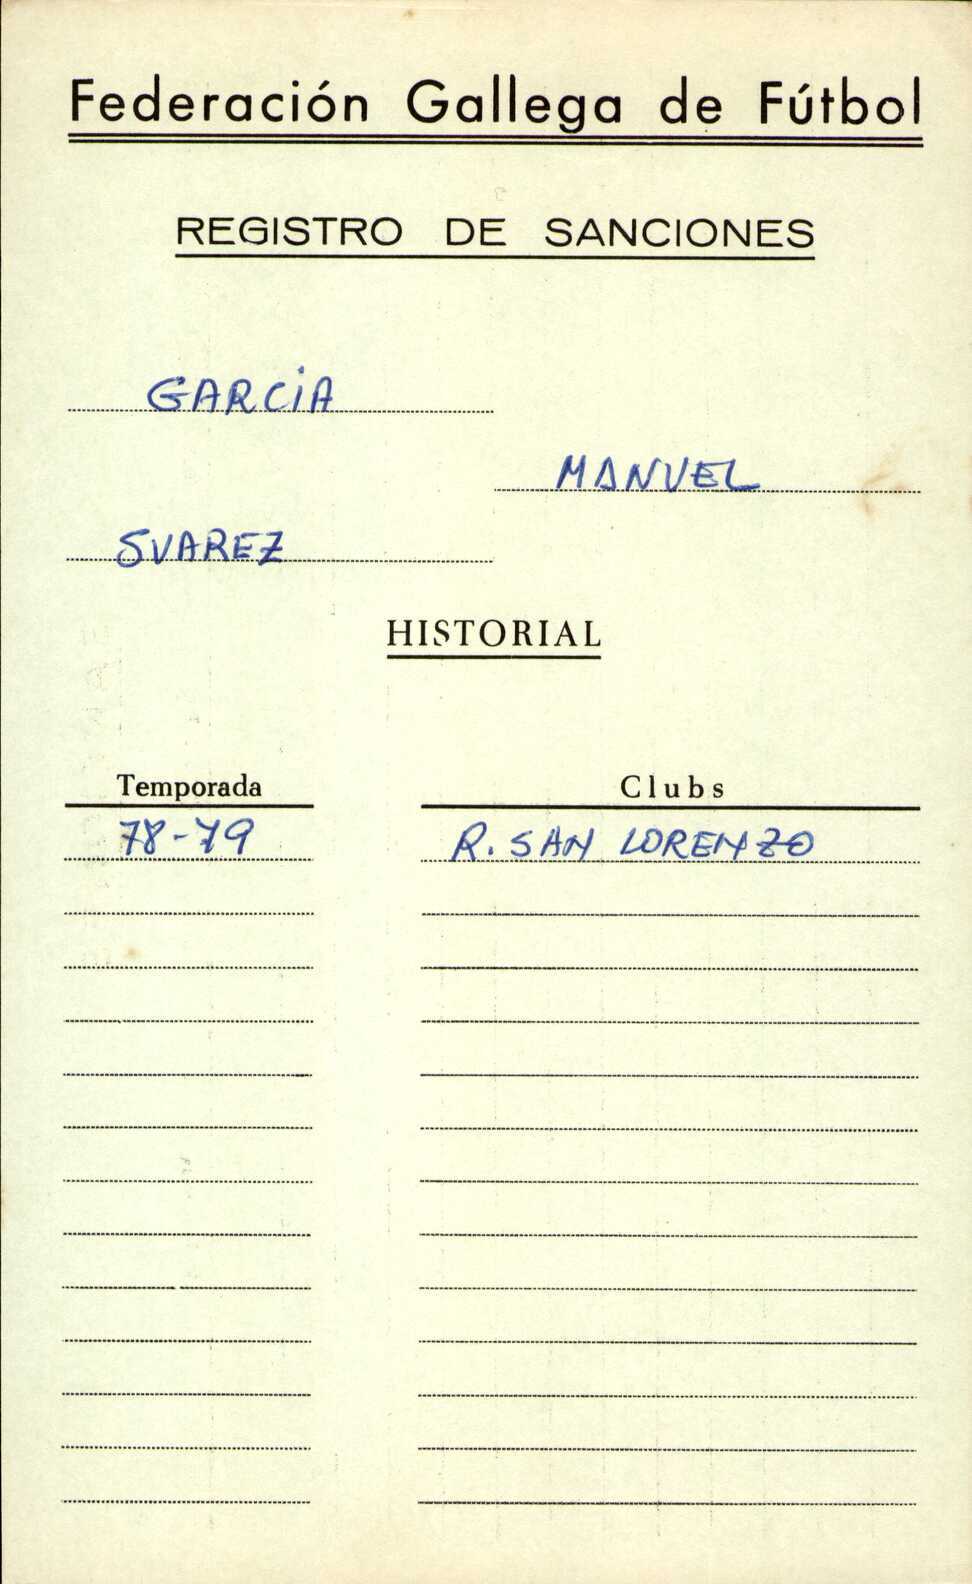 Federación Gallega de Fútbol
REGISTRO DE SANCIONES
GARCIA
MANUEL
SUAREZ
HISTORIAL
Temporada Clubs
78-79 R. SAN LORENZO